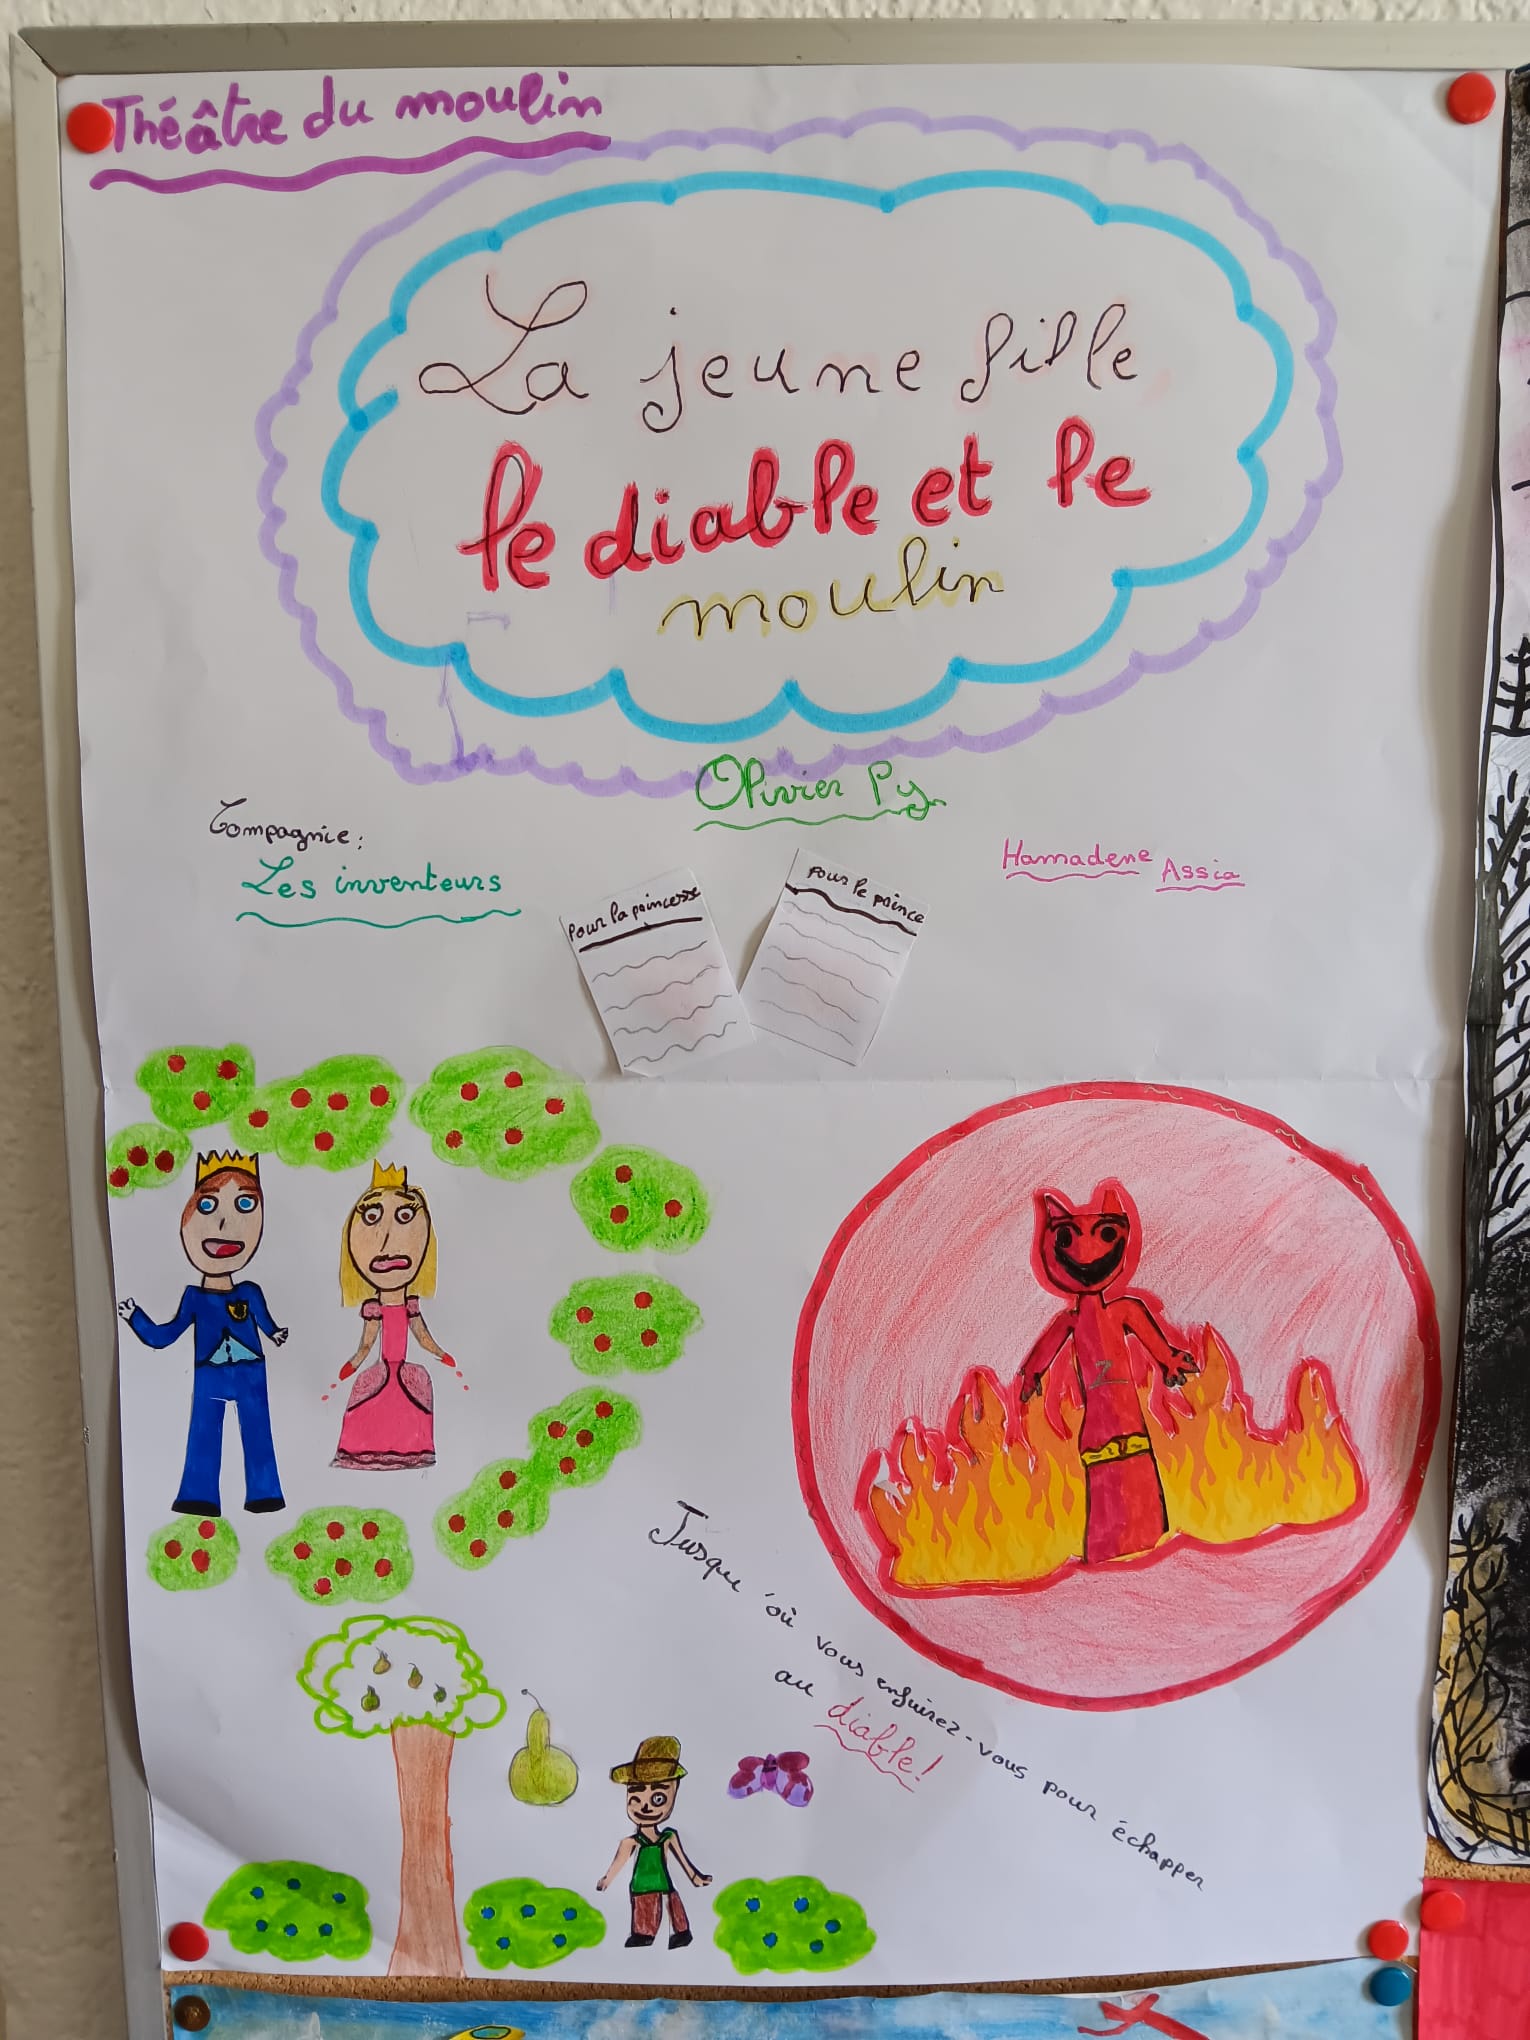 Théâtre du moulin
La jeune fille,
le diable et le
moulin
Olivier Py
Compagnie:
Les inventeurs
Hamadene Assia
Pour la princesse
Pour le prince
Jusque 'où vous enfuirez-vous pour échapper
au diable!
Z